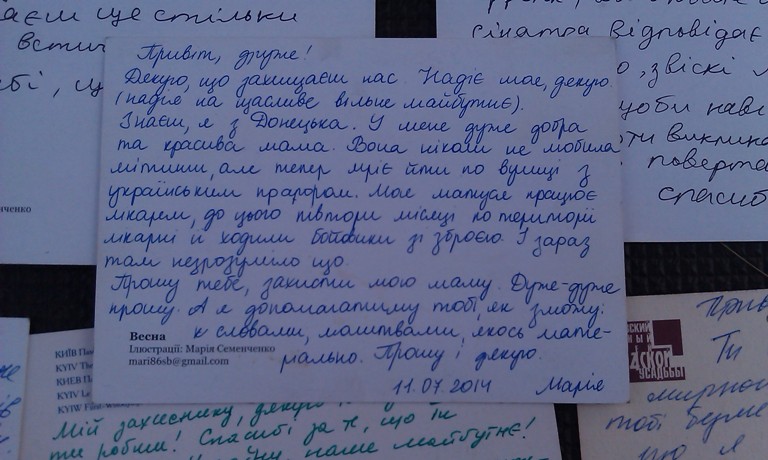 аєш ще стільки
сінатра відповідає
Привіт, друже!
Дякую, що захищаєш нас. Надіє моє, дякую
(надіє на щасливе вільне майбутнє).
Знаєш, я з Донецька. У мене дуже добра
та красива мама. Вона ніколи не любила
мітинги, але тепер мріє йти по вулиці з
українським прапором. Моє матуся працює
лікарем, до цього півтори місяці по території
лікарні й ходили бойовики зі зброєю. І зараз
там незрозуміло що
Прошу тебе, захисти мою маму. Дуже-дуже
прошу. А я допомагатиму тобі, як зможу:
і словами, молитвами, якось мате-
ріально. Прошу і дякую.
11.07.2014 Марія
Весна
Ілюстрації: Марія Семенченко
mari86sb@gmail.com
, звіскі
щоби наві
поверта
спасиб
нченко
КИЇВ
KYIV
КИЕВ
KYIV
KYIW
Мій захиснику, дякую
ти робиш! Спасибі за те, що ти
наше майбутнє!
УСАДЬБЫ
Ти
мирног
тобі
що я